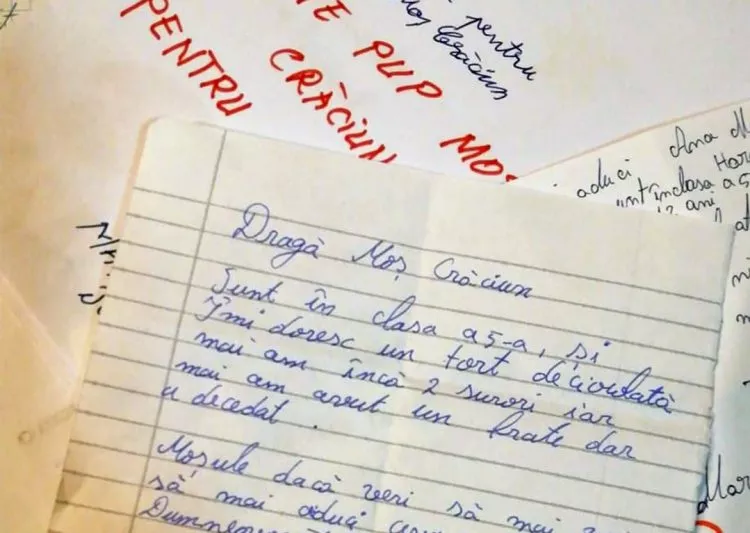 TE PUP MOȘ
CRĂCIUN
PENTRU
pentru
Moș Crăciun
aduci Ana M
clasa
Dragă Moș Crăciun
Sunt în clasa a 5-a, și
Îmi doresc un tort de cioclată
mai am încă 2 surori iar
mai am avut un frate dar
a decedat.
Moșule dacă vrei să mai
să mai aduci
Mar